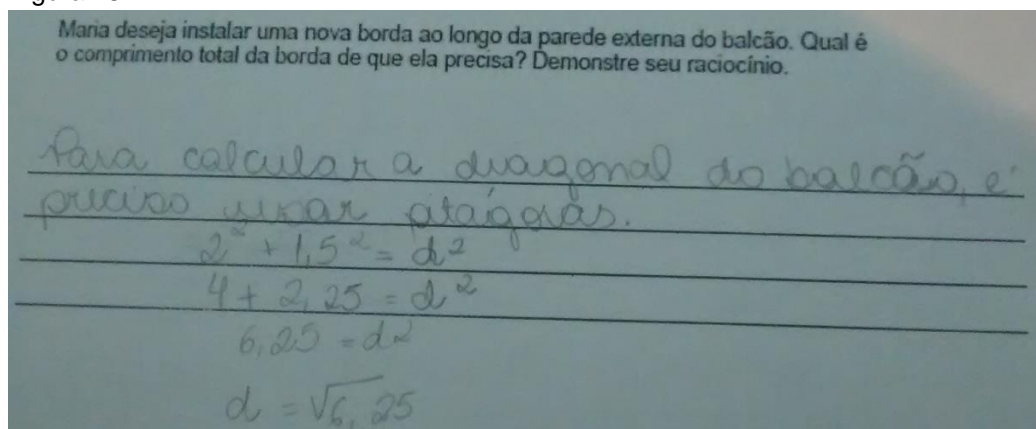 Maria deseja instalar uma nova borda ao longo da parede externa do balcão. Qual é
o comprimento total da borda de que ela precisa? Demonstre seu raciocínio.
Para calcular a diagonal do balcão, é
preciso usar pitágoras.
2² + 1,5² = d²
4 + 2,25 = d²
6,25 = d²
d = √6,25